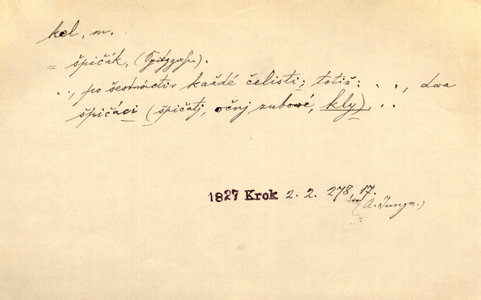 kel, m.
= špičák, (Spitzzahn).
. ., po šestnáctiv každé čelisti; totiž: . . , dwa
špičáci (špičatj, očnj zubowé, kly) . . .
1827 Krok 2. 2. 278, 17.
(A. Jungm.)